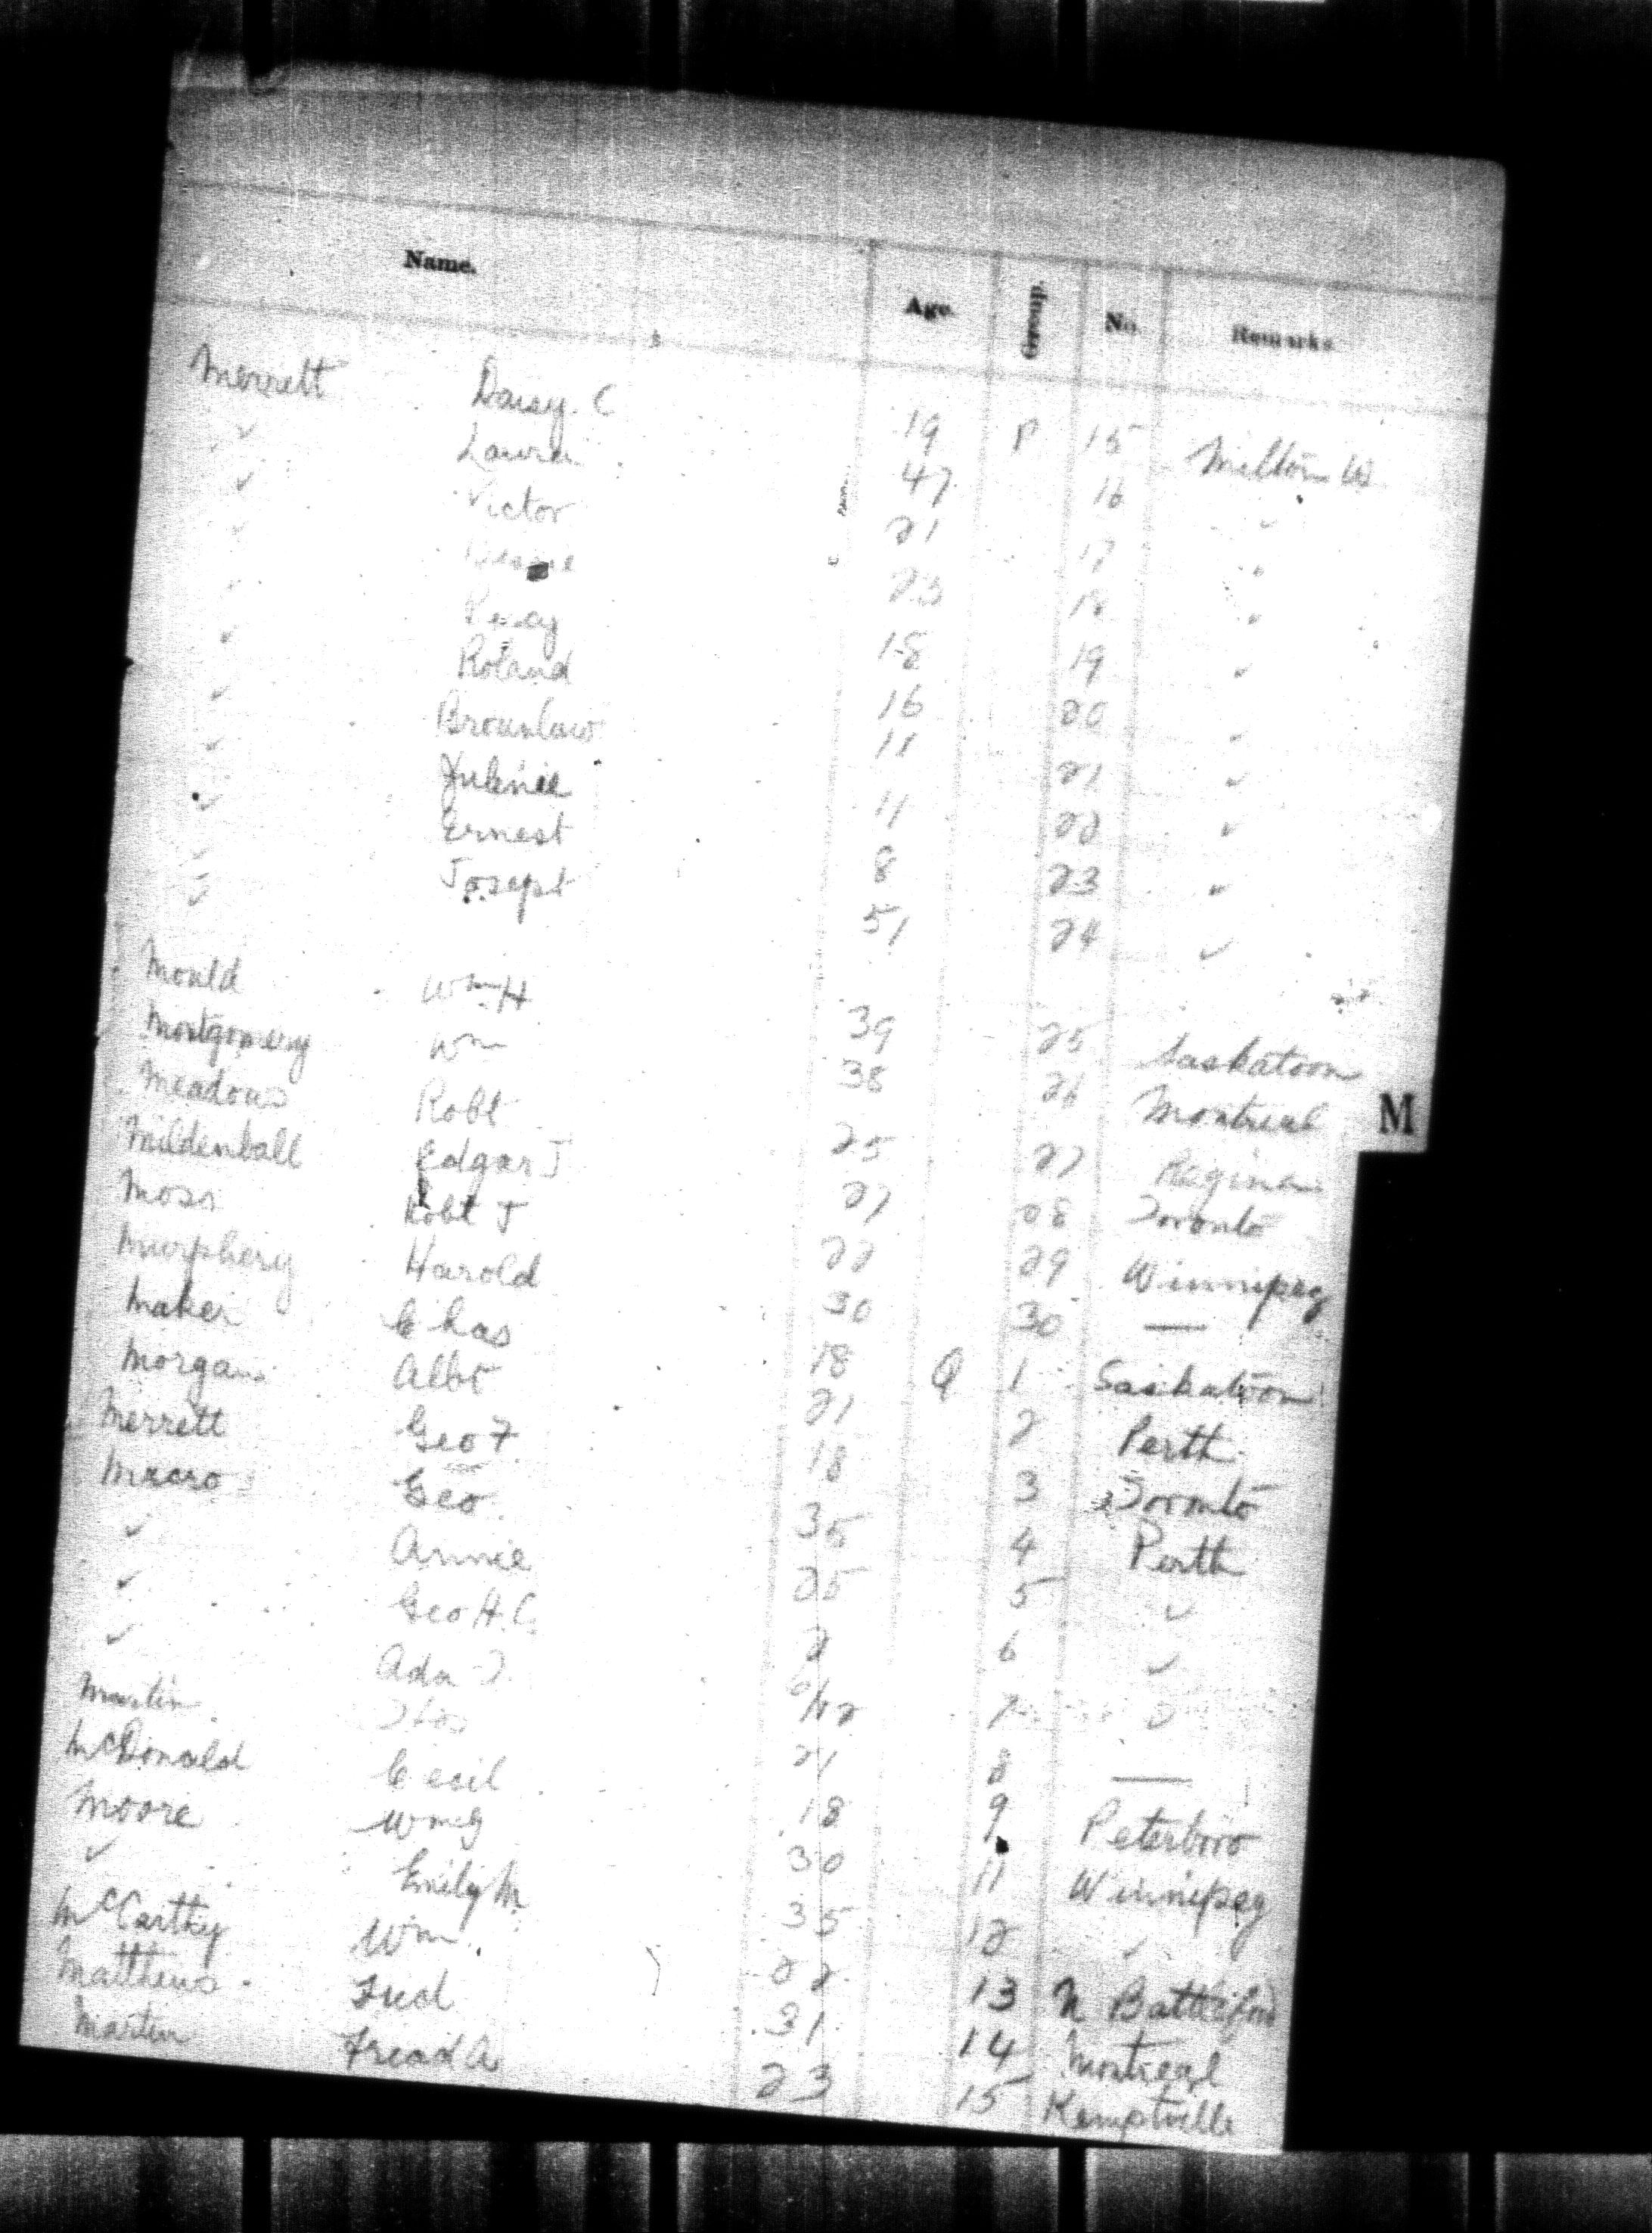 Name. Age. Group. No. Remarks
Merrett Daisy. C 19 P 15 Milton W
✓ Laura 47 16 ✓
✓ Victor 21 17 "
✓ 23 18 "
✓ Percy 18 19 ✓
✓ Roland 16 20 ✓
✓ Brounlaw 11 21 ✓
✓ 11 22 ✓
✓ Ernest 8 23 ✓
✓ Joseph 51 24 ✓
Mould Wm H 39 25 Saskatoon
Montgomery Wm 38 26 Montreal
M
Meadows Robt 25 27 Regina
Mildenball Edgar J 27 28 Toronto
Moss Robt J 22 29 Winnipeg
Murphery Harold 30 30 —
Maker Chas 18 Q 1 Saskatoon
Morgan Albt 21 2 Perth
Merrett Geo F. 18 3 Toronto
Geo. 35 4 Perth
✓ Annie 25 5 ✓
✓ Geo H. C. 2 6 ✓
✓ Ada 7 ✓
Martin Thos 21 8 —
McDonald Cecil 18 9 Peterboro
Moore Wm G 30 11 Winnipeg
✓ Emily M. 35 12 ✓
McCarthy Wm. 22 13 N Battleford
Matthews Fred 31 14 Montreal
Martin Fread A 23 15 Kemptville